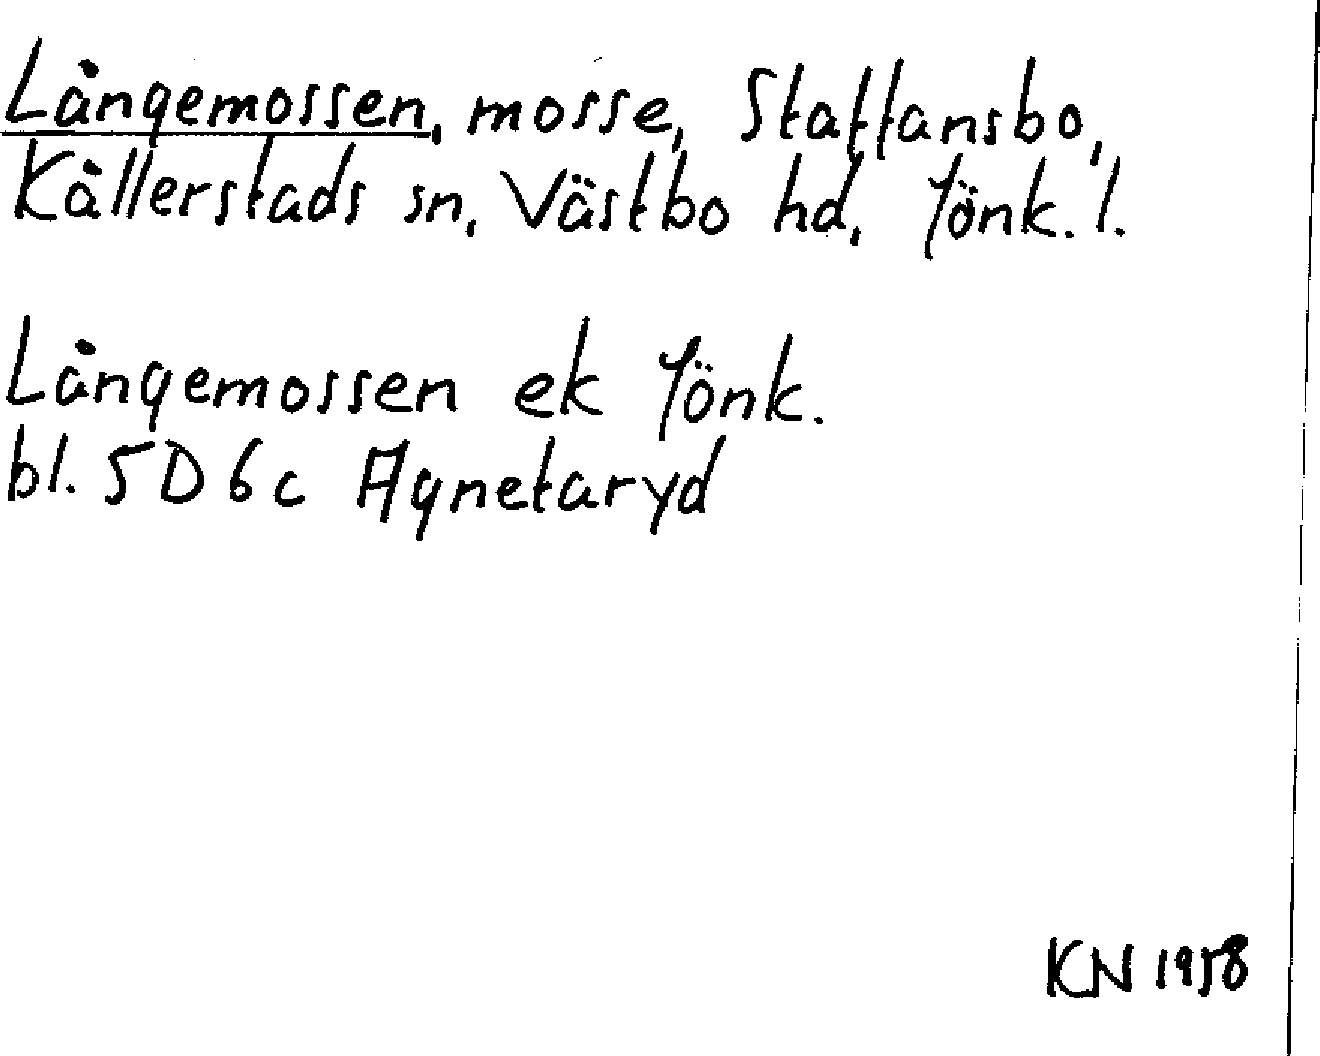 Långemossen, mosse, Staffansbo,
Kållerstads sn, Västbo hd, Jönk. l.
Långemossen ek Jönk.
bl. 5D6c Agnetaryd
KN 1958